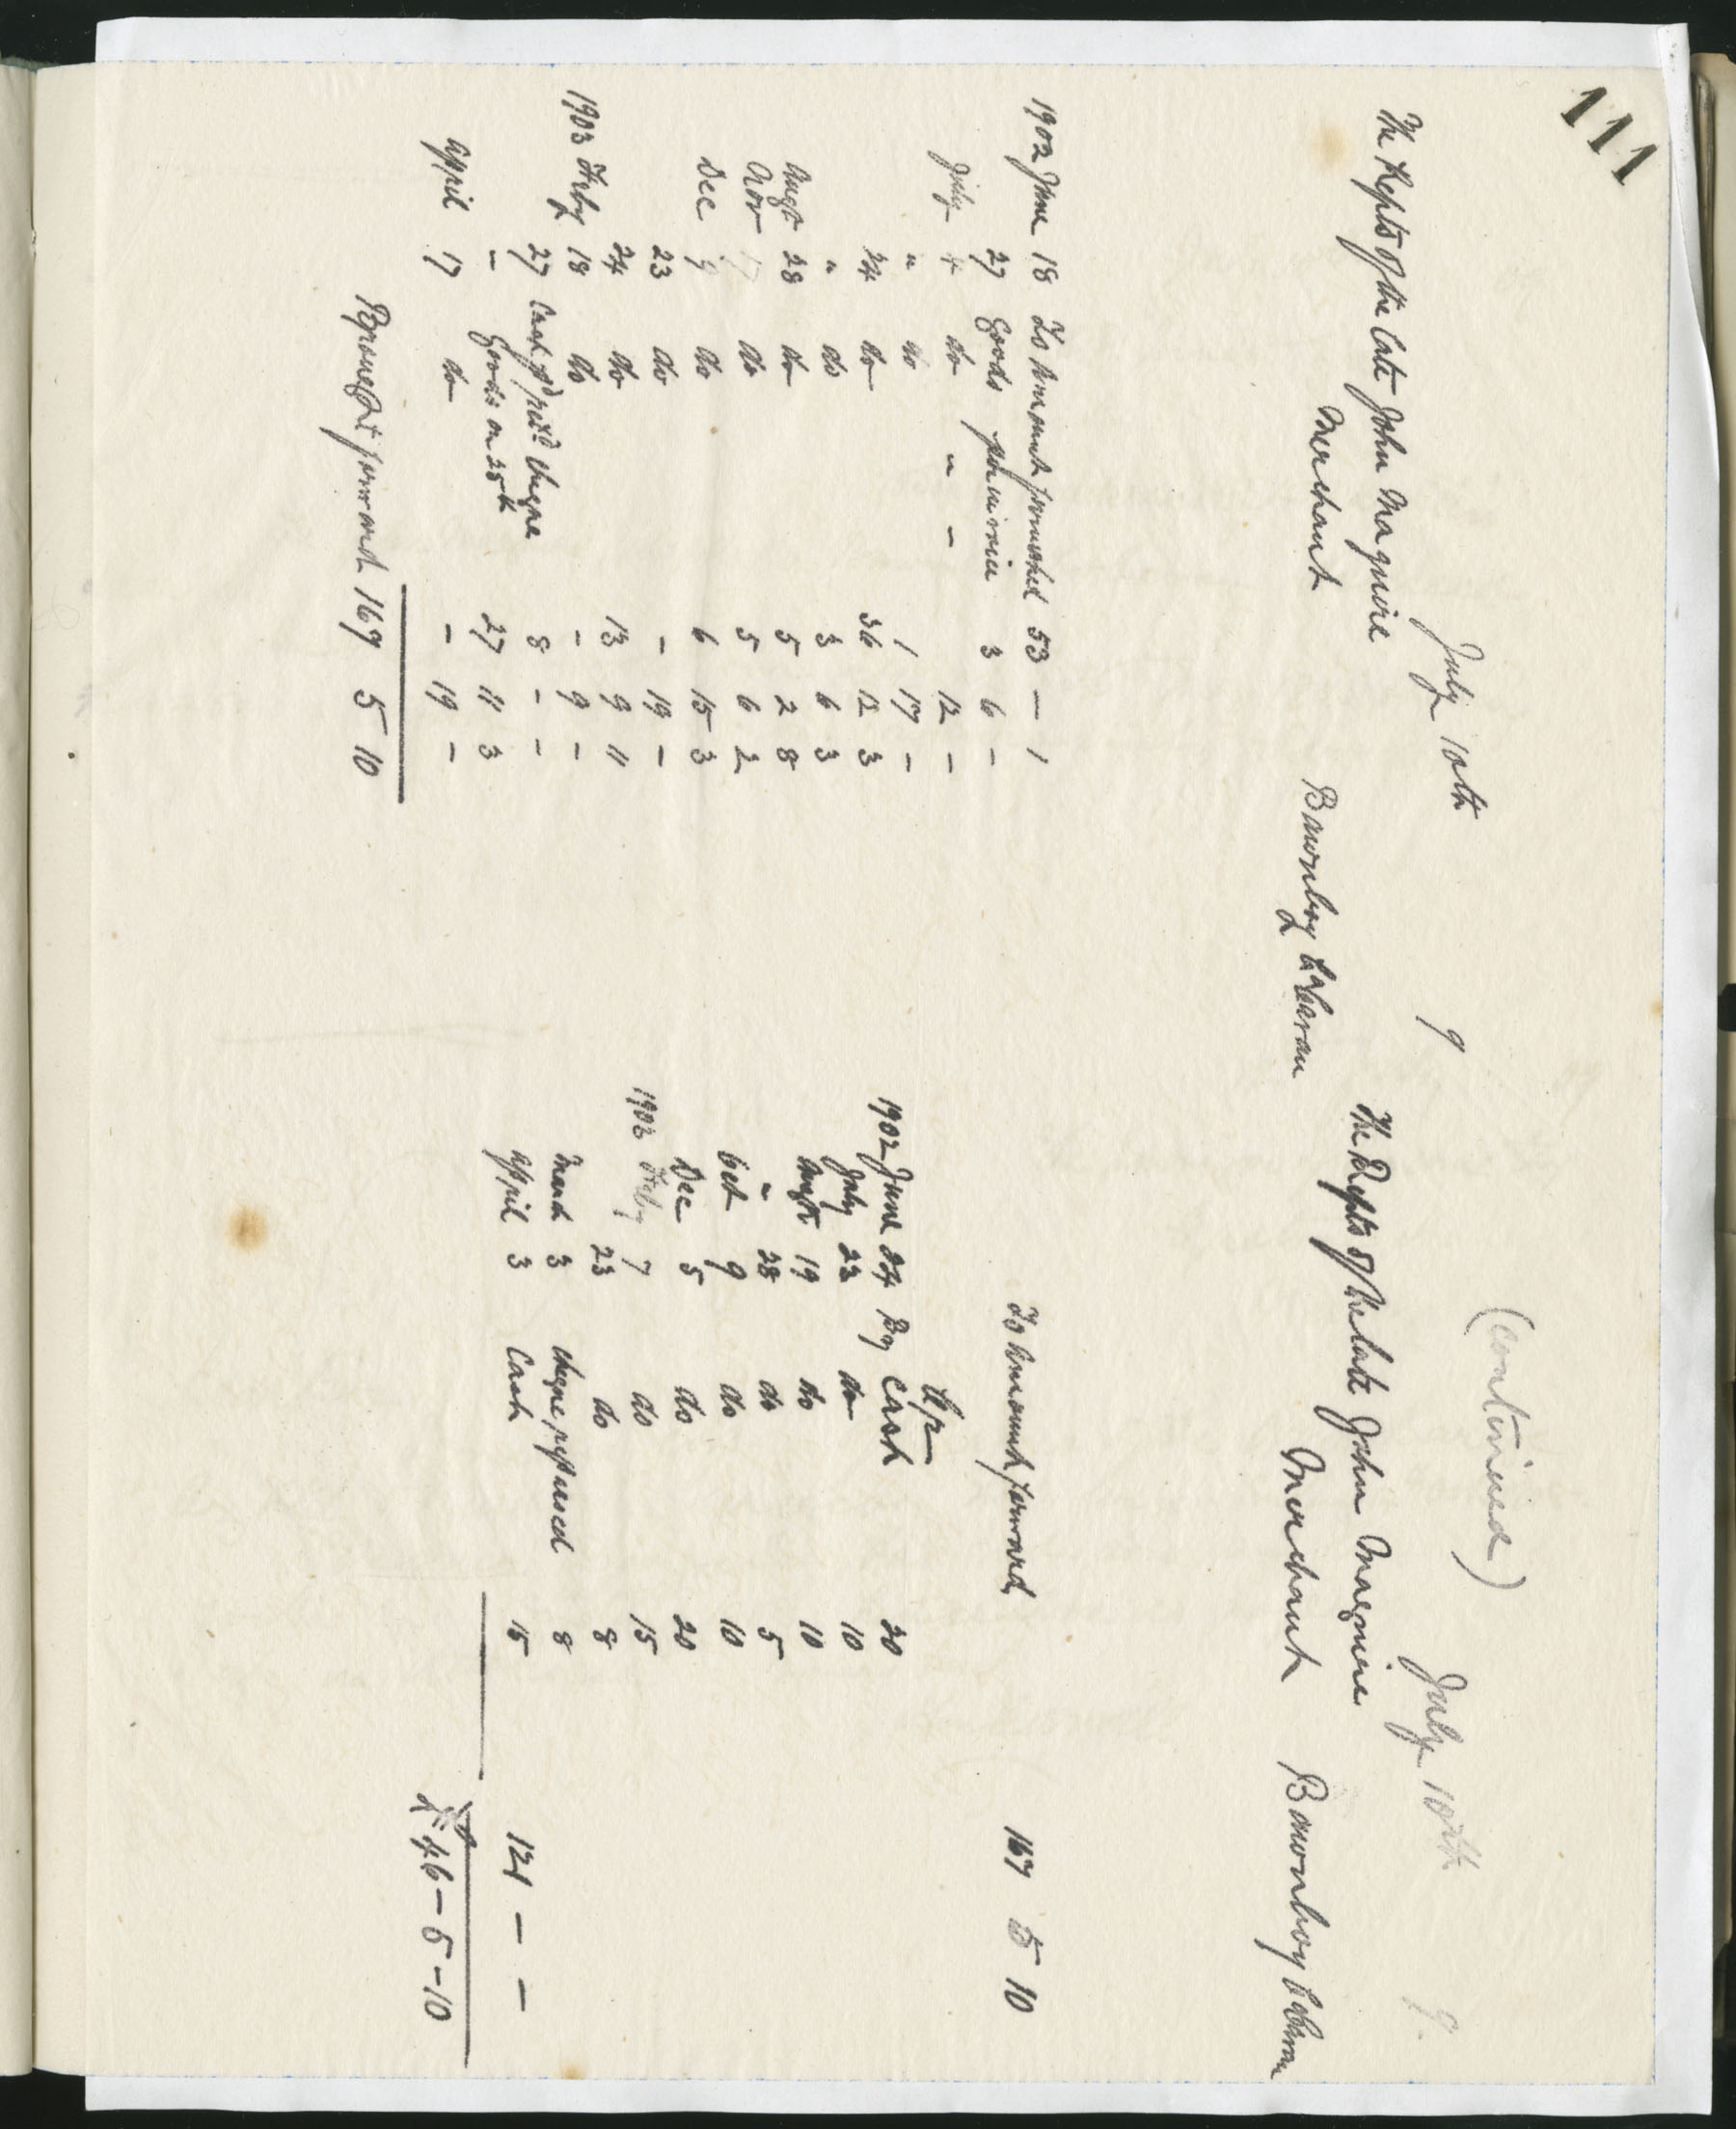 111
July 10th 9
The Repts of the late John Maguire
Merchant Bawnboy Co Cavan
1902 June 18 To Amount furnished 53 — 1
27 Goods per invoice 3 6 —
July 4 do " — 12 —
" do 1 17 —
24 do 36 12 3
" do 3 6 3
Augt 28 do 5 2 8
Nov 17 do 5 6 2
Dec 9 do 6 15 3
23 do — 19 —
24 do 13 9 11
1903 Feby 18 do — 9 —
27 Cash pd cheque 8 — —
— Goods on 25th 27 11 3
April 17 do — 19 —
Brought forward 167 5 10
(continued)
July 10th 9.
The Repts of the late John Maguire
Merchant Bawnboy Co Cavan
To Amount forward 167 5 10
Cr
1902 June 24 By Cash 20
July 23 do 10
Augt 19 do 10
" 28 do 5
Oct 9 do 10
Dec 5 do 20
1903 Feby 7 do 15
23 do 8
March 3 cheque refused 8
April 3 Cash 15 121 — —
£ 46 — 5 — 10